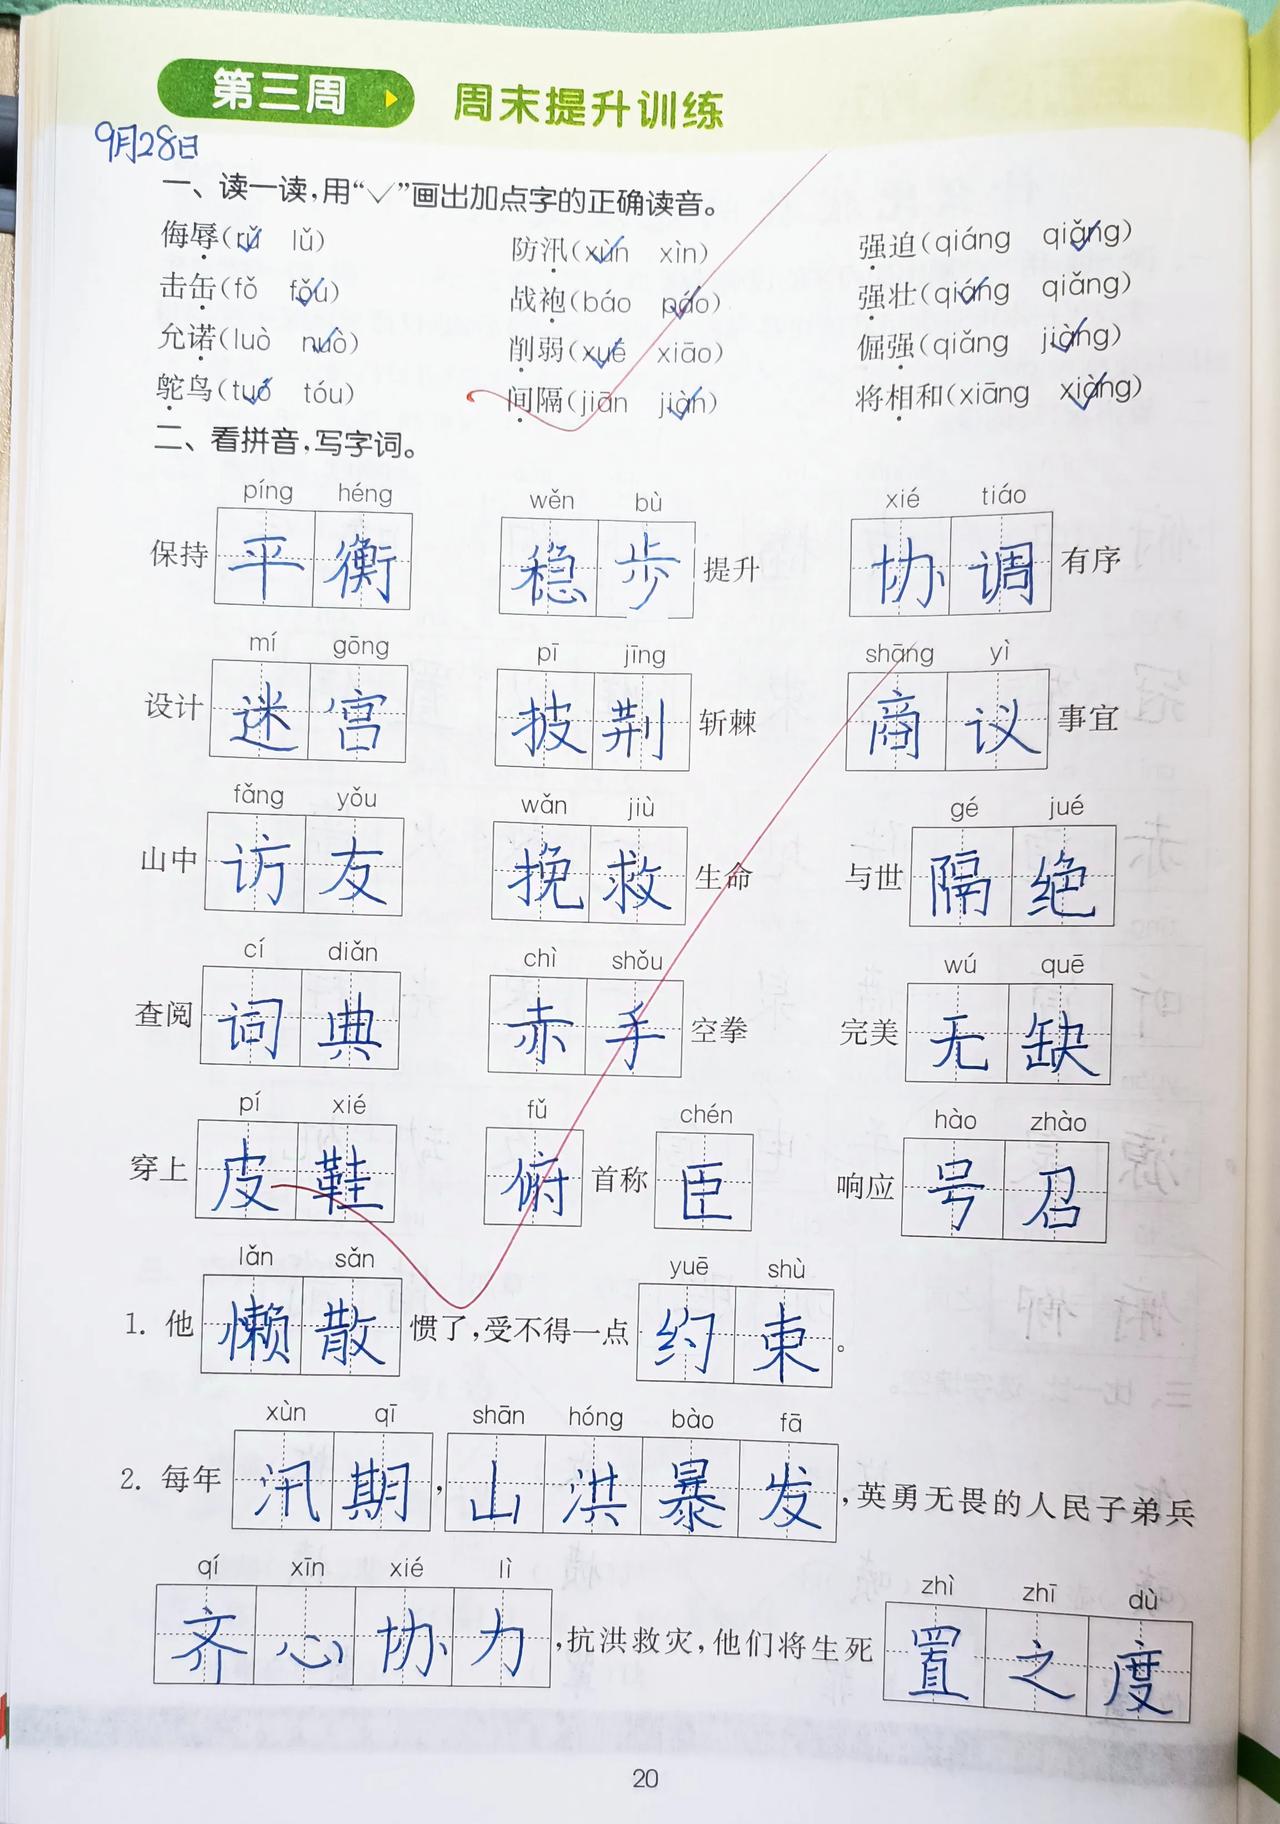 第三周 周末提升训练
9月28日
一、读一读，用“✓”画出加点字的正确读音。
侮辱(rǔ lǔ) 防汛(xùn xìn) 强迫(qiáng qiǎng)
击缶(fǒ fǒu) 战袍(báo páo) 强壮(qiáng qiǎng)
允诺(luò nuò) 削弱(xuē xiāo) 倔强(qiǎng jiàng)
鸵鸟(tuó tóu) 间隔(jiān jiàn) 将相和(xiāng xiàng)
二、看拼音，写字词。
píng héng wěn bù xié tiáo
保持 平衡 稳步 提升 协调 有序
mí gōng pī jīng shāng yì
设计 迷宫 披荆 斩棘 商议 事宜
fǎng yǒu wǎn jiù gé jué
山中 访友 挽救 生命 与世 隔绝
cí diǎn chì shǒu wú quē
查阅 词典 赤手 空拳 完美 无缺
pí xié fǔ chén hào zhào
穿上 皮鞋 俯 首称 臣 响应 号召
lǎn sǎn yuē shù
1. 他 懒散 惯了，受不得一点 约束 。
xùn qī shān hóng bào fā
2. 每年 汛期 ， 山洪暴发 ，英勇无畏的人民子弟兵
qí xīn xié lì zhì zhī dù
齐心协力 ，抗洪救灾，他们将生死 置之度
20